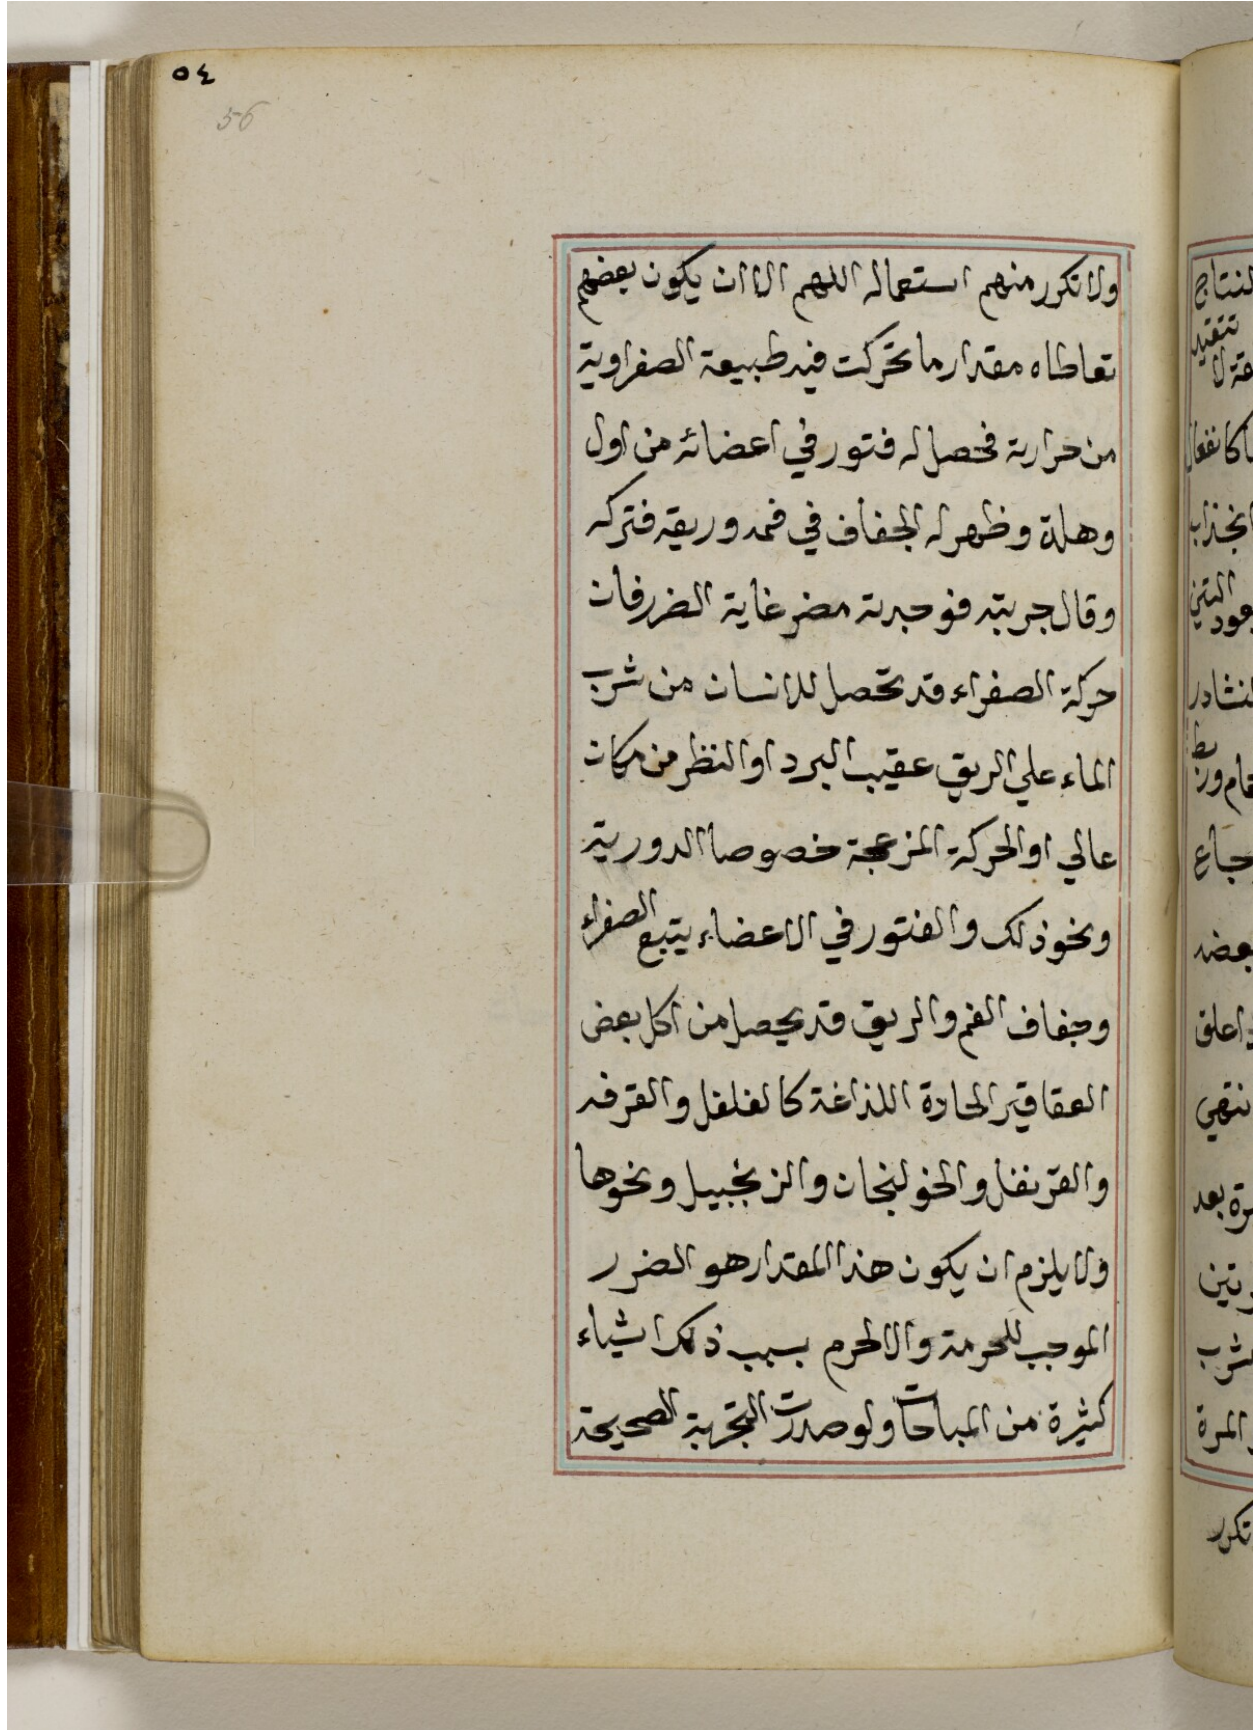 ٥٤
56
ولا تكرر منهم استعماله اللهم الا ان يكون بعضهم
تعاطاه مقدار ما تحركت فيه طبيعة الصفراوية
من حرارته فحصل له فتور في اعضائه من اول
وهلة وظهر له الجفاف في فمه وريقه فتركه
وقال جربته فوجدته مضر غاية الضرر فان
حركة الصفراء قد تحصل للانسان من شرب
الماء علي الريق عقيب البرد او النظر من مكان
عالي او الحركة المزعجة خصوصا الدورية
ونحو ذلك والفتور في الاعضاء يتبع الصفراء
وجفاف الفم والريق قد يحصل من اكل بعض
العقاقير الحادة اللذاغة كالفلفل والقرفه
والقرنفل والخولنجان والزنجبيل ونحوها
ولا يلزم ان يكون هذا المقدار هو الضرر
الموجب للحرمة والا لحرم بسبب ذلك اشياء
كثيرة من المباحات ولو صدرت التجربة الصحيحة